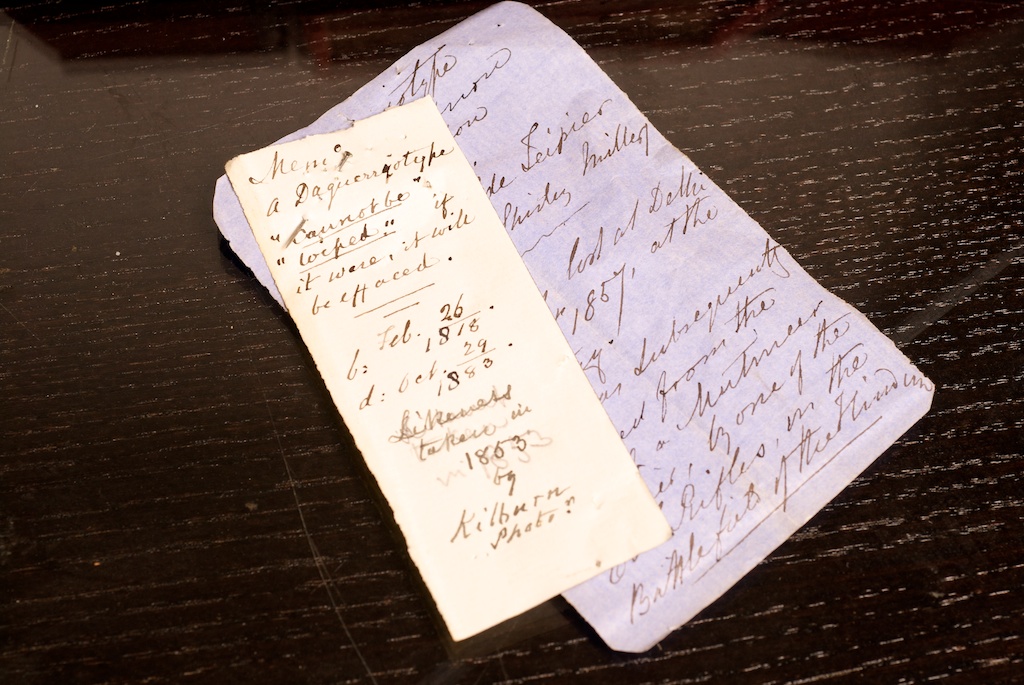 Memo
A Daguerreotype
"Cannot be"
"wiped." if
it were, it will
be effaced.
b: Feb. 26
1818.
d: Oct. 29
1883.
Likeness
taken in
1853
by
Kilburn
Photo:
otype
on
de
Shirley Miller
lost at Delhi
1857, at the
subsequently
from the
a Mutineer
by one of the
Rifles, in the
Battlefield of the Hindun